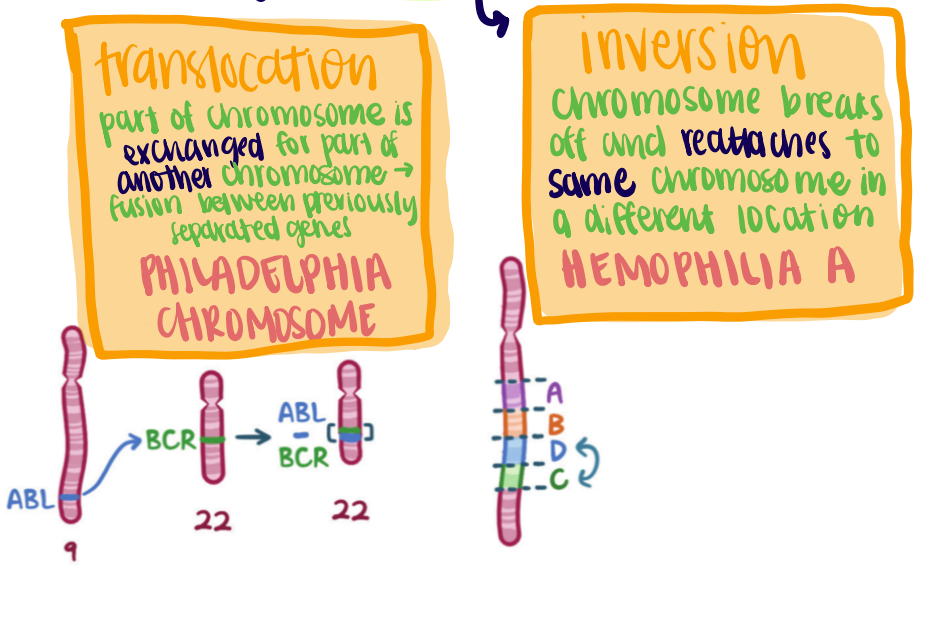 translocation
part of chromosome is
exchanged for part of
another chromosome →
fusion between previously
separated genes
PHILADELPHIA
CHROMOSOME
inversion
chromosome breaks
off and reattaches to
same chromosome in
a different location
HEMOPHILIA A
ABL
9
BCR
22
ABL
BCR
22
A
B
D
C